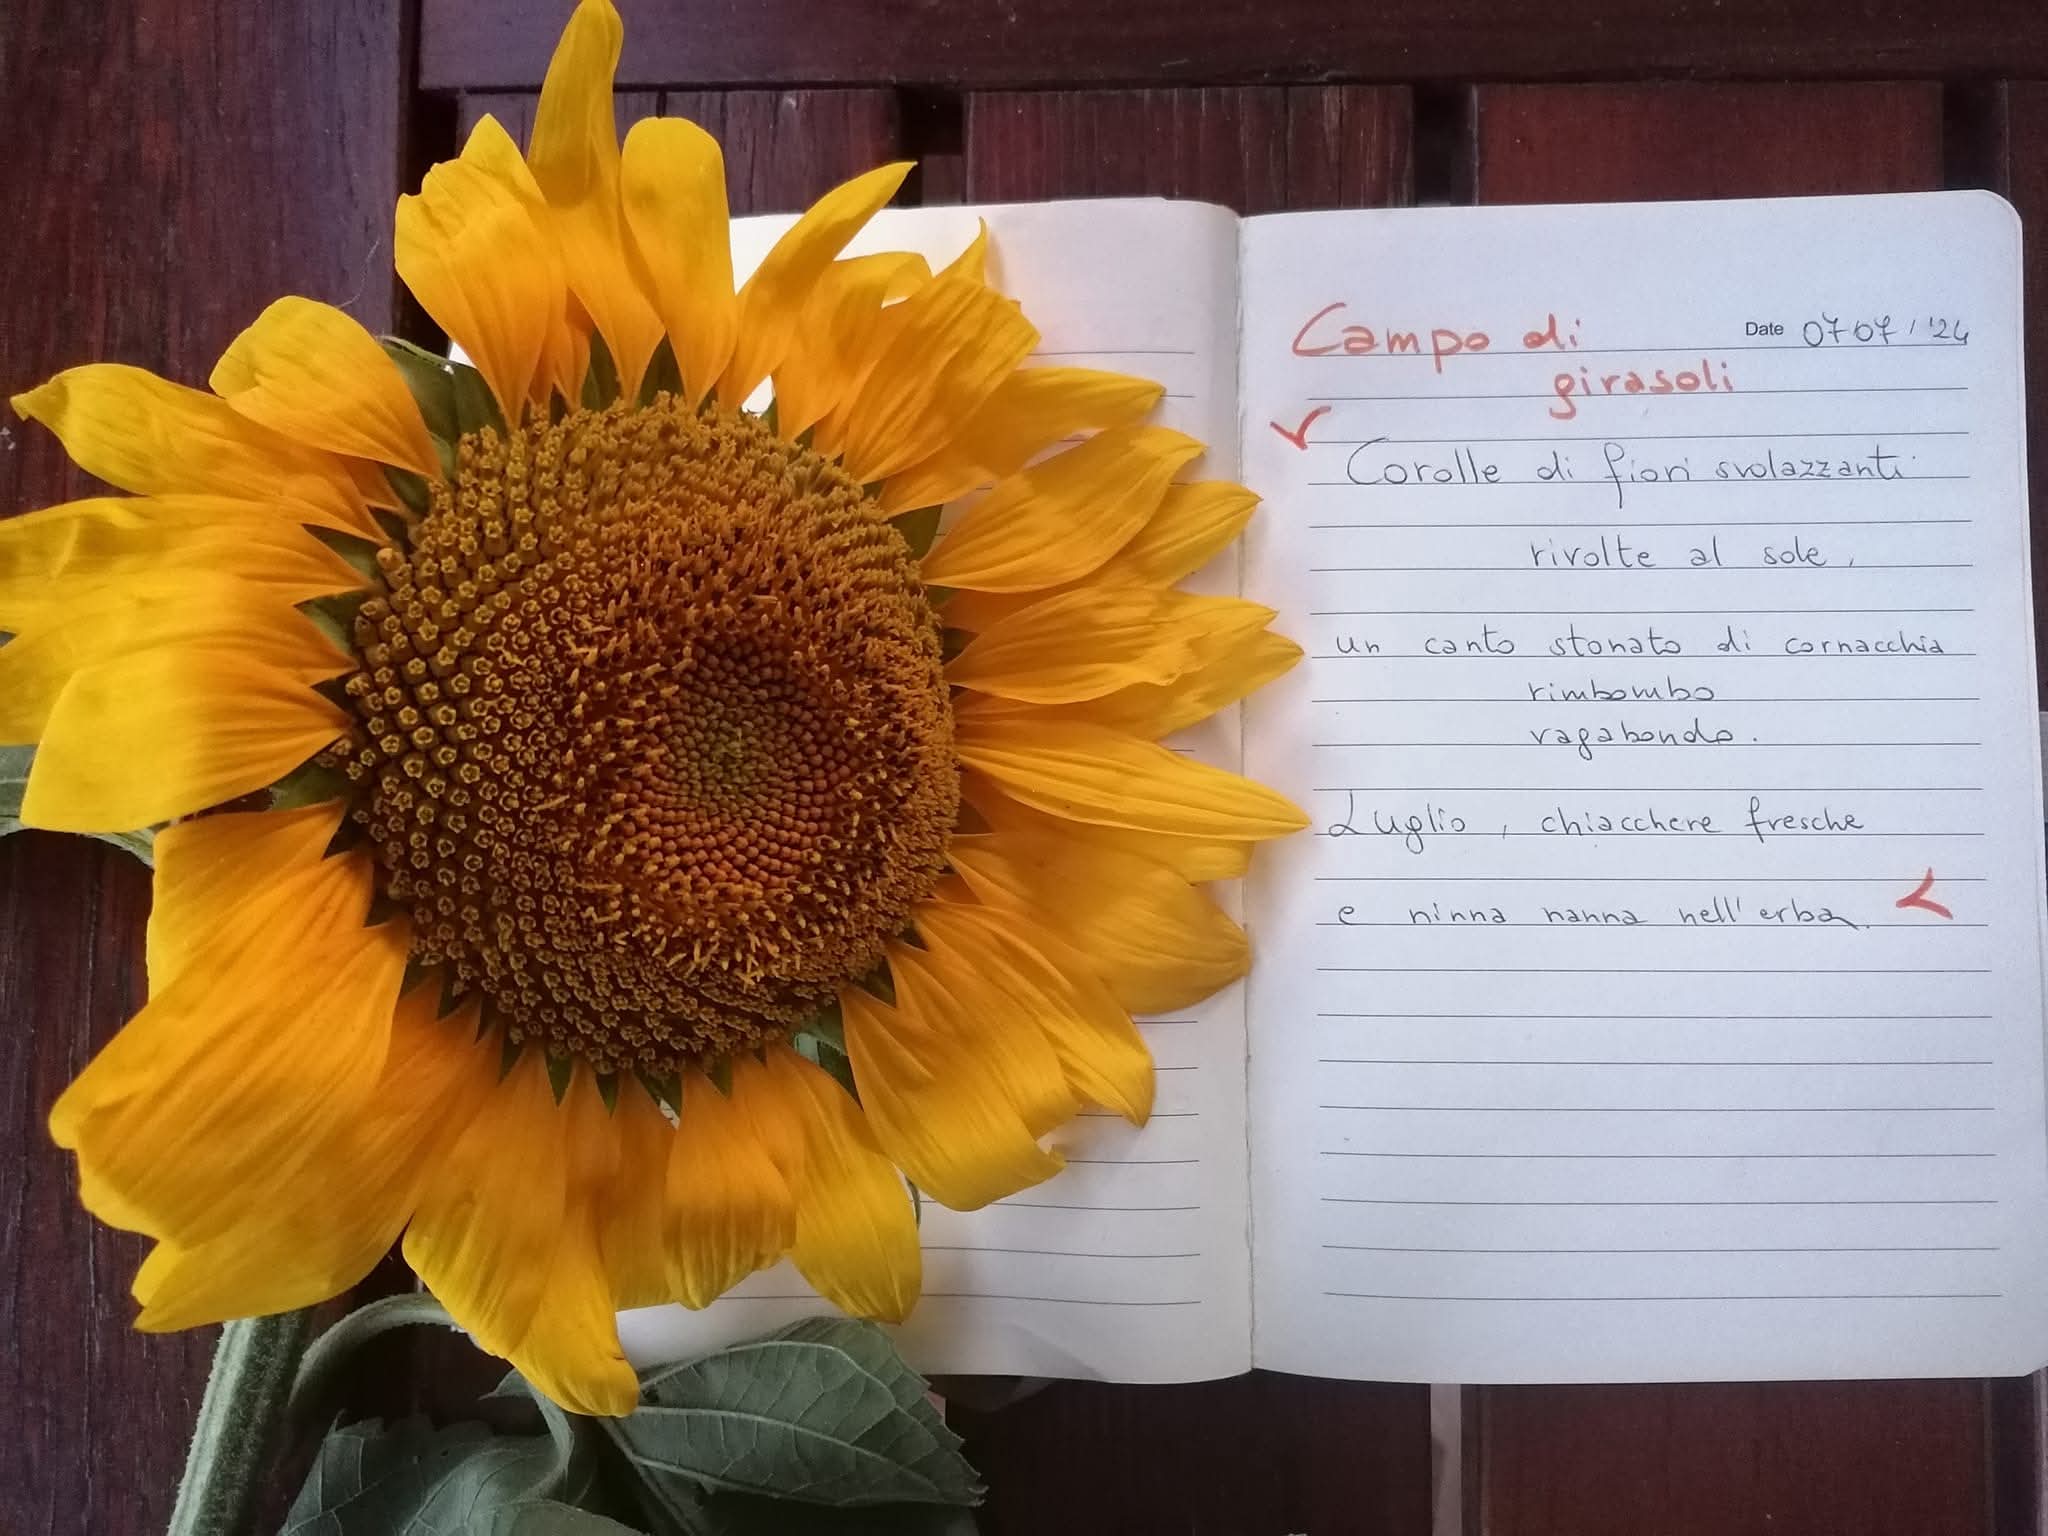 Campo di
Date 07 07 / '24
girasoli
Corolle di fiori svolazzanti
rivolte al sole,
un canto stonato di cornacchia
rimbombo
vagabondo.
Luglio, chiacchere fresche
e ninna nanna nell'erba.